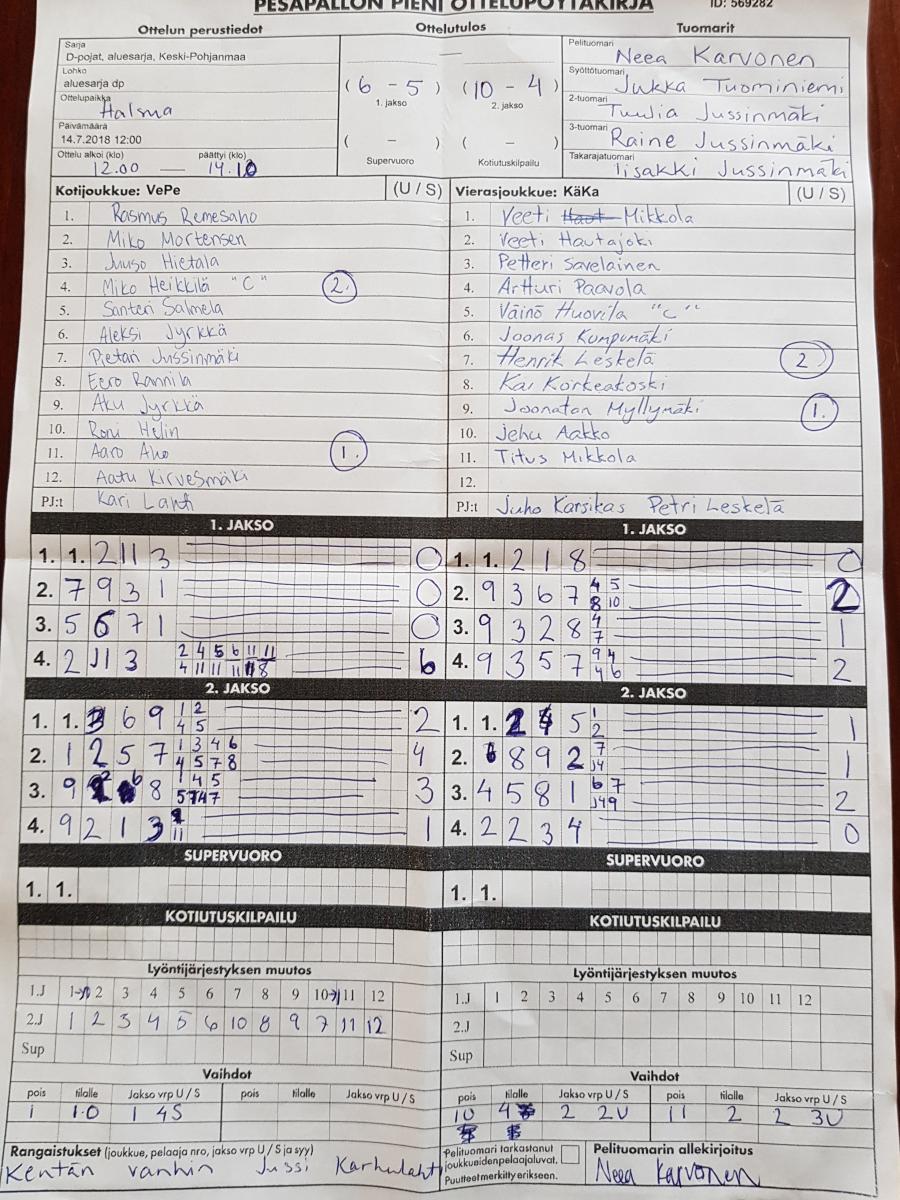 PESÄPALLON PIENI OTTELUPÖYTÄKIRJA ID: 569282
Ottelun perustiedot
Sarja
D-pojat, aluesarja, Keski-Pohjanmaa
Lohko
aluesarja dp
Ottelupaikka
Halsua
Päivämäärä
14.7.2018 12:00
Ottelu alkoi (klo) päättyi (klo)
12.00 — 14.10
Ottelutulos
(6 - 5) (10 - 4)
1. jakso 2. jakso
( - ) ( - )
Supervuoro Kotiutuskilpailu
Tuomarit
Pelituomari Neea Karvonen
Syöttötuomari Jukka Tuominiemi
2-tuomari Tuulia Jussinmäki
3-tuomari Raine Jussinmäki
Takarajatuomari Iisakki Jussinmäki
Kotijoukkue: VePe (U / S)
1. Rasmus Remesaho
2. Miko Mortensen
3. Juuso Hietala
4. Miko Heikkilä "C" 2.
5. Santeri Salmela
6. Aleksi Jyrkkä
7. Pietari Jussinmäki
8. Eero Rannila
9. Aku Jyrkkä
10. Roni Helin
11. Aaro Aho 1.
12. Aatu Kirvesmäki
PJ:t Kari Lahti
Vierasjoukkue: KäKa (U / S)
1. Veeti Mikkola
2. Veeti Hautajoki
3. Petteri Savelainen
4. Artturi Paavola
5. Väinö Huovila "C"
6. Joonas Kumpumäki
7. Henrik Leskelä 2
8. Kai Korkeakoski
9. Joonatan Myllymäki 1.
10. Jehu Aakko
11. Titus Mikkola
12.
PJ:t Juho Karsikas Petri Leskelä
1. JAKSO
1. 1. 2 11 3 0
2. 7 9 3 1 0
3. 5 6 7 1 0
4. 2 11 3 2 4 5 6 11 11 6
1. JAKSO
1. 1. 2 1 8 0
2. 9 3 6 7 4 5 2
8 10
3. 9 3 2 8 4 1
7
4. 9 3 5 7 9 4 2
4 6
2. JAKSO
1. 1. 3 6 9 1 2 2
4 5
2. 1 2 5 7 1 3 4 6 4
4 5 7 8
3. 9 8 1 4 5 3
4. 9 2 1 3 1
11
2. JAKSO
1. 1. 2 5 1 1
2
2. 8 9 2 7 1
3. 4 5 8 1 6 7 2
4. 2 2 3 4 0
SUPERVUORO
1. 1.
SUPERVUORO
1. 1.
KOTIUTUSKILPAILU
KOTIUTUSKILPAILU
Lyöntijärjestyksen muutos
1.J 1 2 3 4 5 6 7 8 9 10 11 12
2.J 1 2 3 4 5 6 10 8 9 7 11 12
Sup
Lyöntijärjestyksen muutos
1.J 1 2 3 4 5 6 7 8 9 10 11 12
2.J
Sup
Vaihdot
pois tilalle Jakso vrp U / S pois tilalle Jakso vrp U / S
1 10 1 4S
Vaihdot
pois tilalle Jakso vrp U / S pois tilalle Jakso vrp U / S
10 4 2 2U 11 2 2 3U
Rangaistukset (joukkue, pelaaja nro, jakso vrp U / S ja syy)
Kentän vanhin Jussi Karhulahti
Pelituomari tarkastanut
joukkueiden pelaajaluvat.
Puutteet merkitty erikseen.
Pelituomarin allekirjoitus
Neea Karvonen